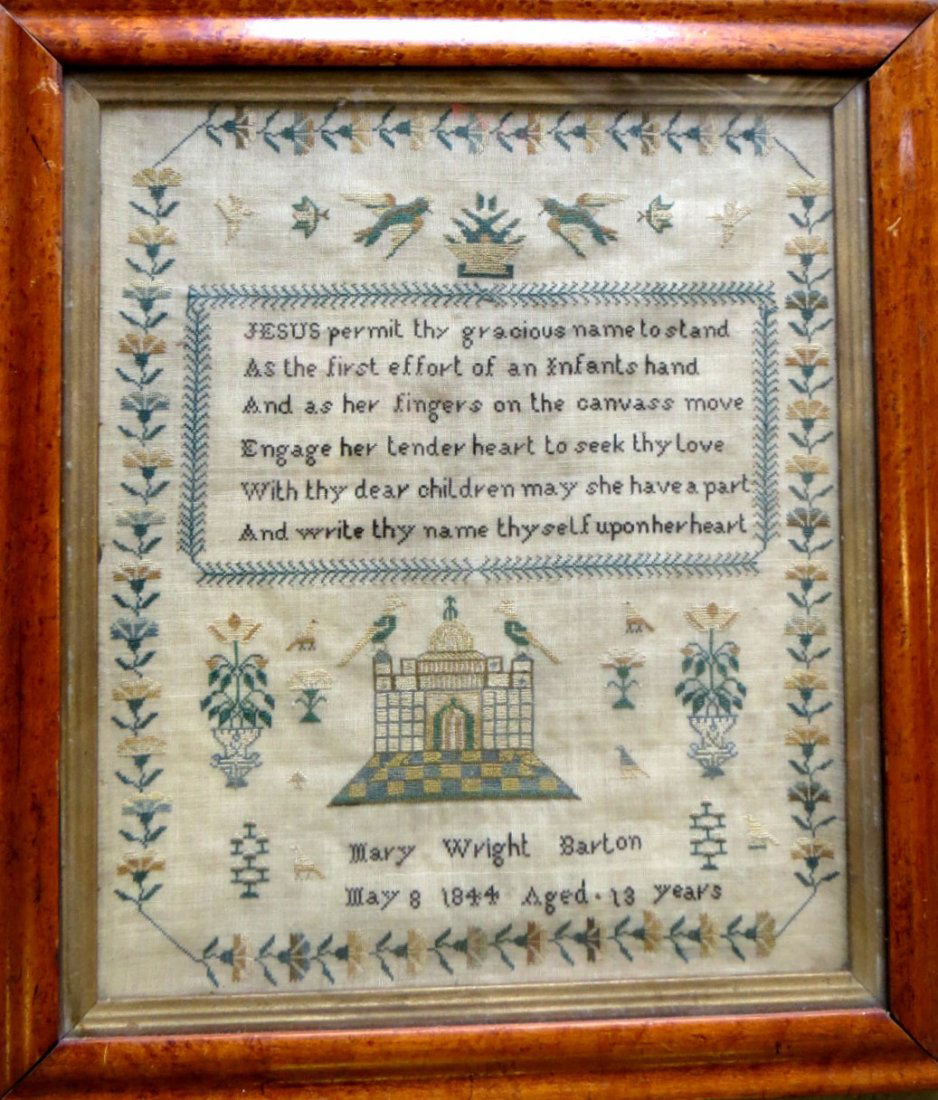 JESUS permit thy gracious name to stand
As the first effort of an Infants hand
And as her fingers on the canvass move
Engage her tender heart to seek thy love
With thy dear children may she have a part
And write thy name thyself upon her heart
Mary Wright Barton
May 8 1844 Aged . 13 years